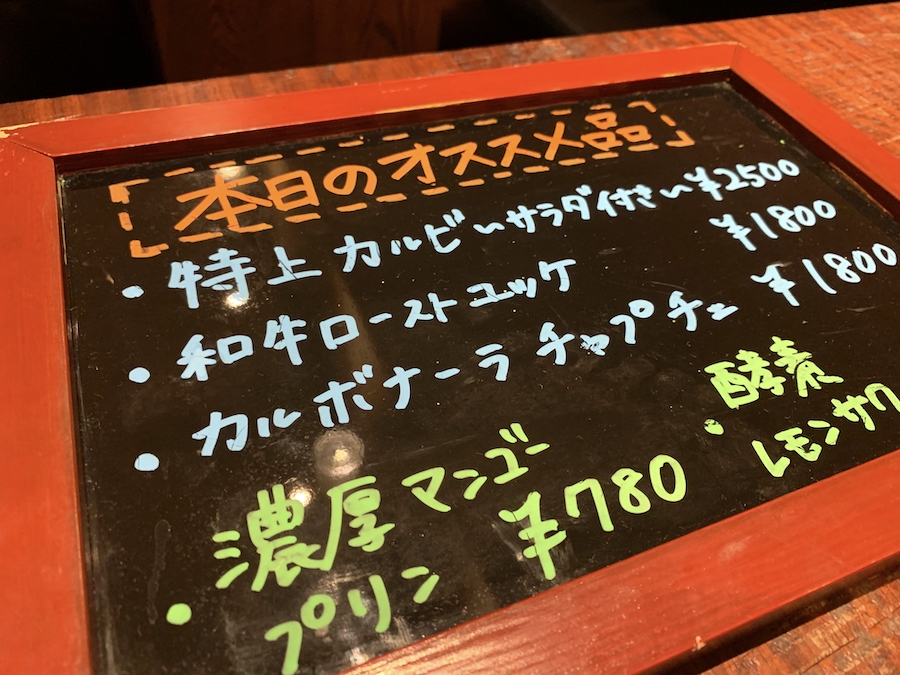 本日のオススメ品
・特上カルビ〜サラダ付き〜¥2500
・和牛ローストユッケ ¥1800
・カルボナーラチャプチェ ¥1800
・濃厚マンゴー
プリン ¥780
・酵素
レモンサワ